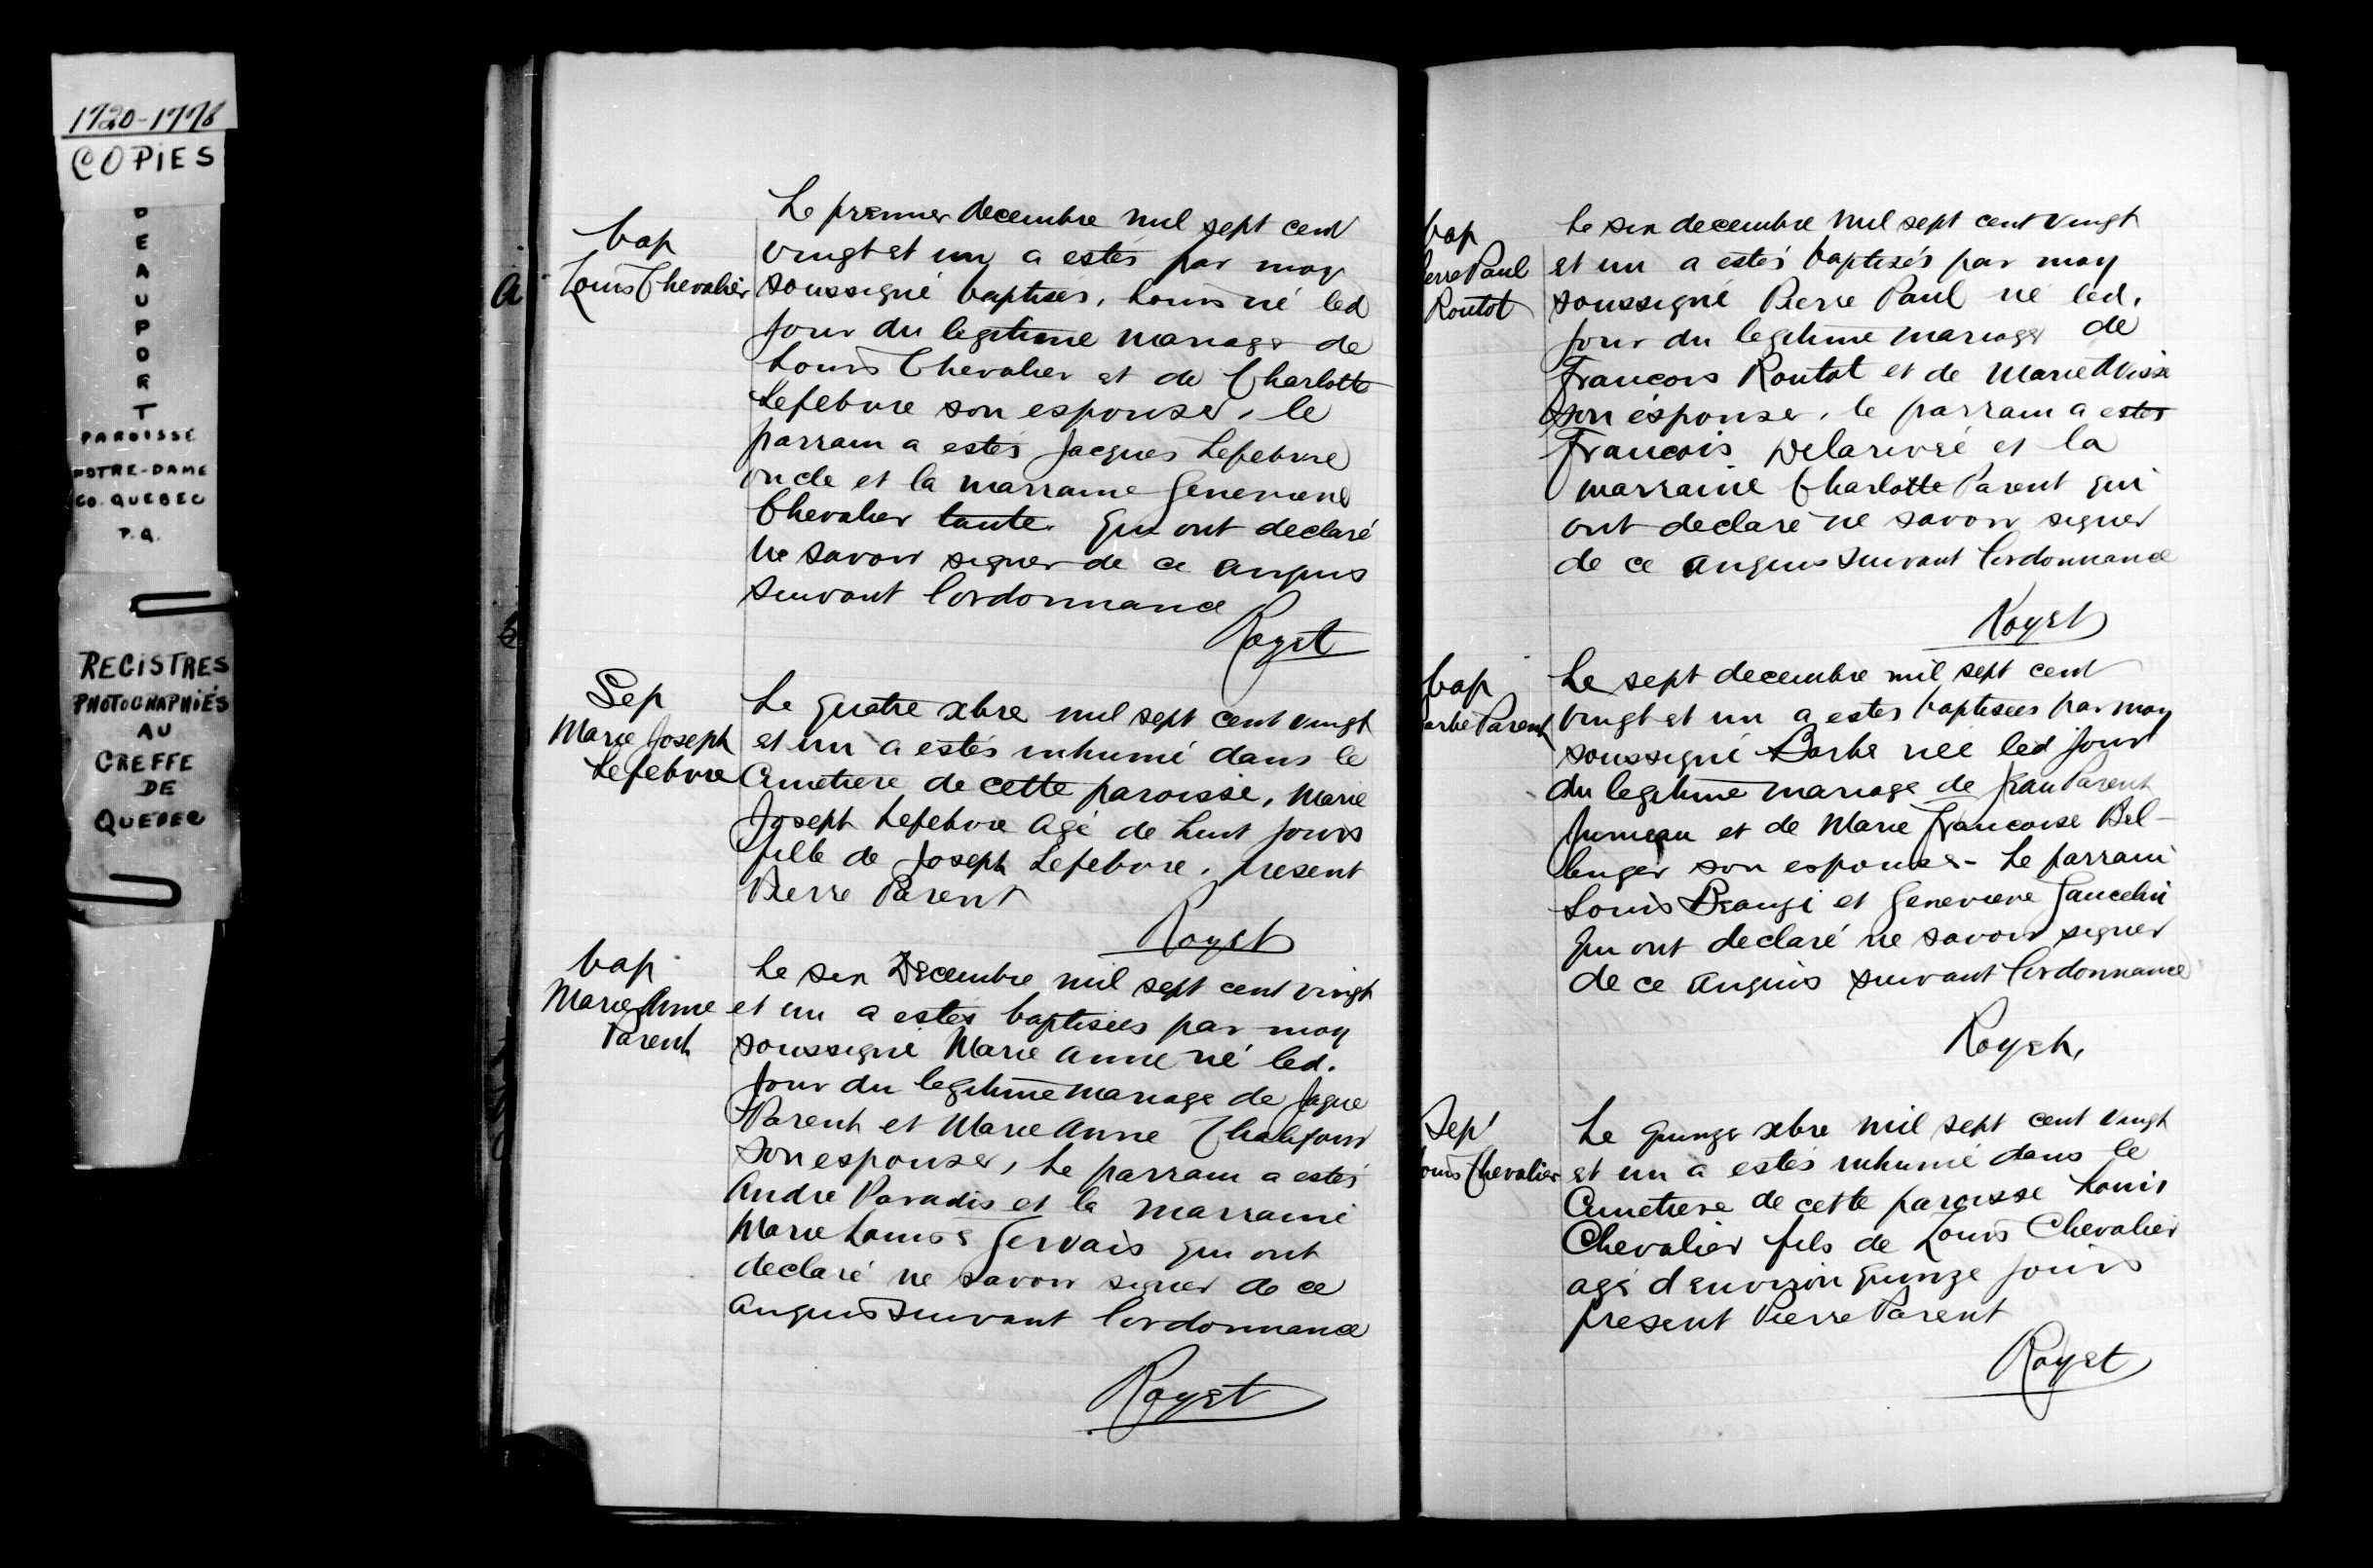 1720-1776
COPIES
BEAUPORT
PAROISSE
NOTRE-DAME
CO. QUEBEC
P.Q.
REGISTRES
PHOTOGRAPHIÉS
AU
GREFFE
DE
QUEBEC
a
bap
Louis Chevalier
Le premier decembre mil sept cent
vingt et un a estés par moy
soussigné baptises, Louis né led
jour du legitime mariage de
Louis Chevalier et de Charlotte
Lefebvre son espouse, le
parrain a estés Jacques Lefebvre
oncle et la marraine Genevieve
Chevalier tante. qui ont declaré
ne savoir signer de ce anquis
suivant lordonnance
Royet
Sep
Marie Joseph
Lefebvre
Le quatre xbre mil sept cent vingt
et un a estés inhumé dans le
Cimetiere de cette paroisse, Marie
Joseph Lefebvre agé de huit jours
fille de Joseph Lefebvre, present
Pierre Parent
Royet
bap
Marie Anne
Parent
Le six Decembre mil sept cent vingt
et un a estés baptisées par moy
soussigné Marie Anne né led.
jour du legitime mariage de Jaque
Parent et Marie Anne Chalifour
son espouse, le parrain a estés
André Paradis et la marraine
Marie Louise Gervais qui ont
declaré ne savoir signer de ce
anquis suivant lordonnance
Royet
bap
ierre Paul
Routot
Le six decembre mil sept cent vingt
et un a estés baptisés par moy
soussigné Pierre Paul né led.
jour du legitime mariage de
Francois Routot et de Marie Avisse
son épouse, le parrain a estés
Francois Delarivré et la
marraine Charlotte Parent qui
ont declaré ne savoir signer
de ce anquis suivant lordonnance
Royet
bap
arbe Parent
Le sept decembre mil sept cent
vingt et un a estes baptisees par moy
soussigné Barbe née led jour
du legitime mariage de Jean Parent
jumeau et de Marie Francoise Bel-
lenger son espouse - Le parrain
Louis Beaugi et Genevieve Jancelin
qui ont declaré ne savoir signer
de ce anquis suivant lordonnance
Royet,
Sep
ouis Chevalier
Le quinze xbre mil sept cent vingt
et un a estés inhumé dans le
Cimetiere de cette paroisse Louis
Chevalier fils de Louis Chevalier
agé d'environ quinze jours
present Pierre Parent
Royet